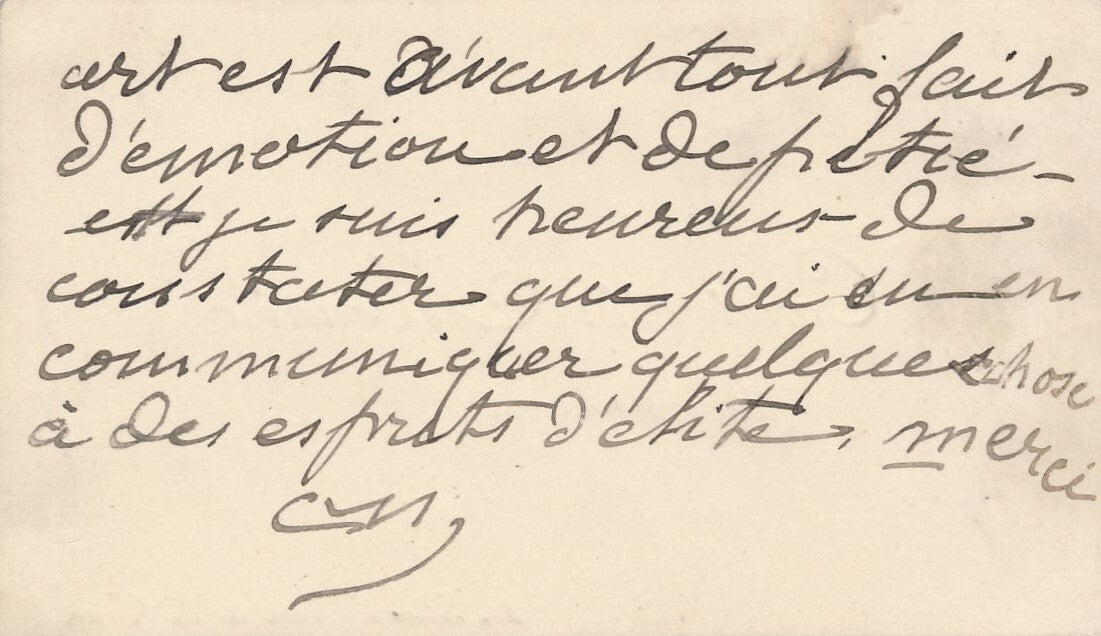 art est avant tout fait
d'émotion et de pitié -
et je suis heureux de
constater que j'ai su en
communiquer quelque chose
à des esprits d'élite. merci